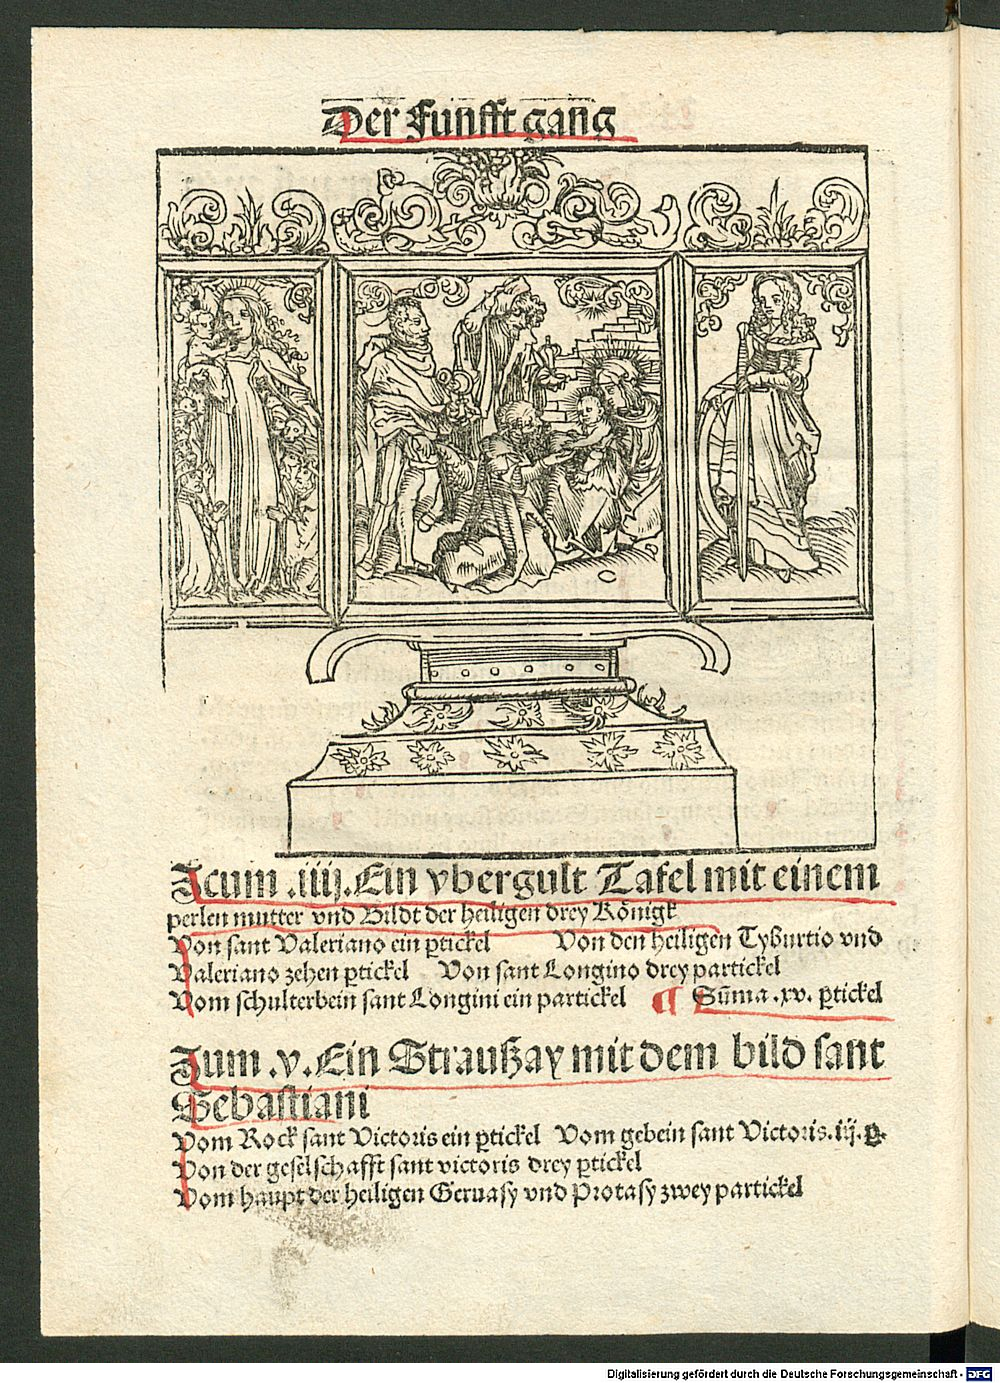 Der Funfft gang
Zcum .iiij. Ein vbergult Tafel mit einem
perlen mutter vnd Bildt der heiligen drey Königk
Von sant Valeriano ein ꝑtickel Von den heiligen Tyburtio vnd
Valeriano zehen ꝑtickel Von sant Longino drey partickel
Vom schulterbein sant Longini ein partickel ¶ Sum̄a .xv. ꝑtickel
Zum .v. Ein Straußay mit dem bild sant
Sebastiani
Vom Rock sant Victoris ein ꝑtickel Vom gebein sant Victoris. iij. ꝑ.
Von der geselschafft sant victoris drey ꝑtickel
Vom haupt der heiligen Geruasy vnd Protasy zwey partickel
Digitalisierung gefördert durch die Deutsche Forschungsgemeinschaft - DFG